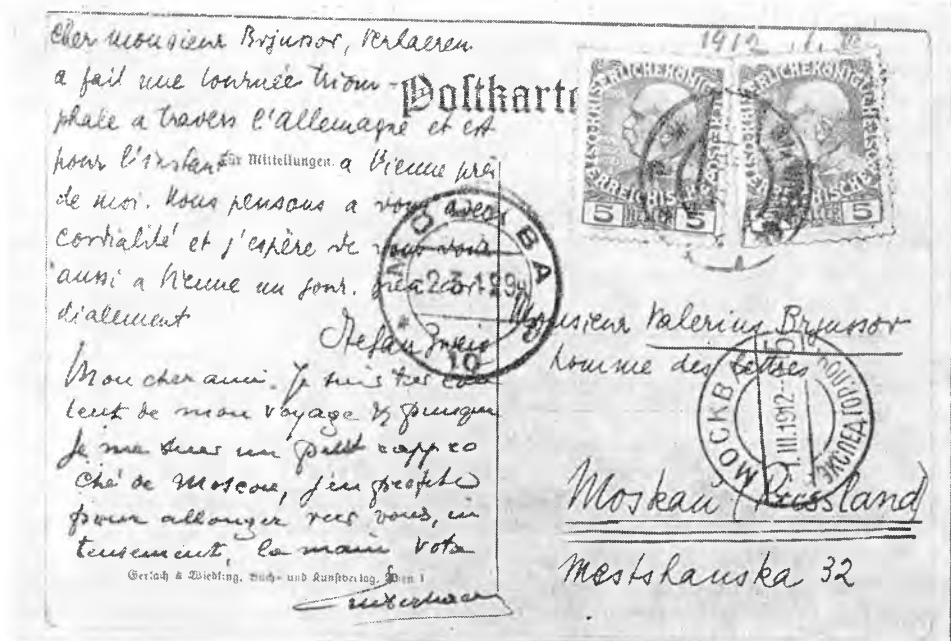 Cher monsieur Brjussov, Verhaeren
a fait une tournée triom-
phale a travers l'Allemagne et est
pour l'instant a Vienne près
de moi. Nous pensons a vous avec
cordialité et j'espère de vous voir
aussi a Vienne un jour. Bien cor-
dialement
Stefan Zweig
Mon cher ami. Je suis très con
tent de mon voyage puisque
je me suis un peu rappro
ché de Moscou, j'en profite
pour allonger vers vous, in
tensement, la main Votre
Verhaeren
Postkarte
für Mitteilungen.
Gerlach & Wiedling, Buch- und Kunstverlag, Wien I
1912
5 HELLER 5
5 HELLER 5
МОСКВА
10
Monsieur Valerius Brjussov
homme des lettres
МОСКВА
1.III.1912
Moskau (Russland)
Mestshanska 32